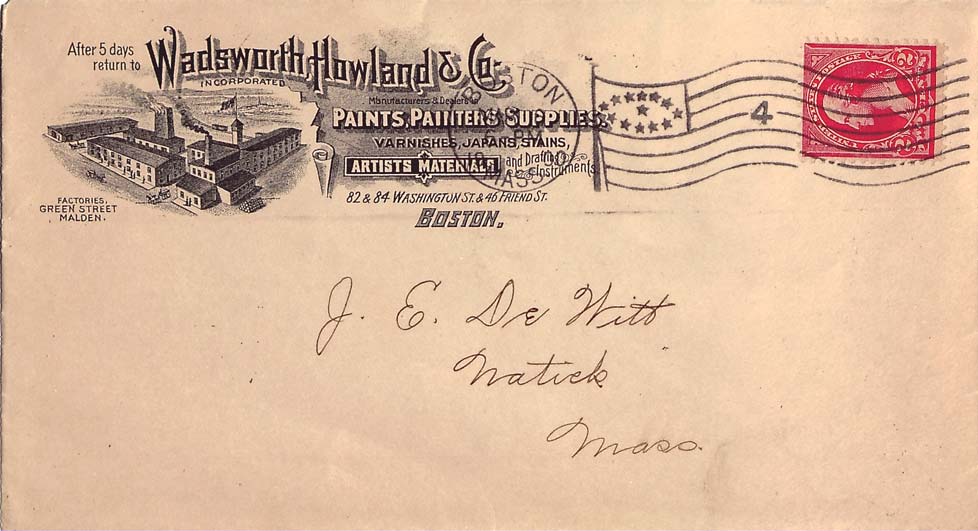 After 5 days
return to
Wadsworth, Howland & Co.
INCORPORATED
Manufacturers & Dealers in
PAINTS, PAINTERS' SUPPLIES,
VARNISHES, JAPANS, STAINS,
ARTISTS' MATERIALS and Drafting Instruments.
82 & 84 WASHINGTON ST. & 46 FRIEND ST.
BOSTON.
FACTORIES,
GREEN STREET
MALDEN.
BOSTON
6 PM
MASS
4
POSTAGE
J. E. De Witt
Natick
Mass.